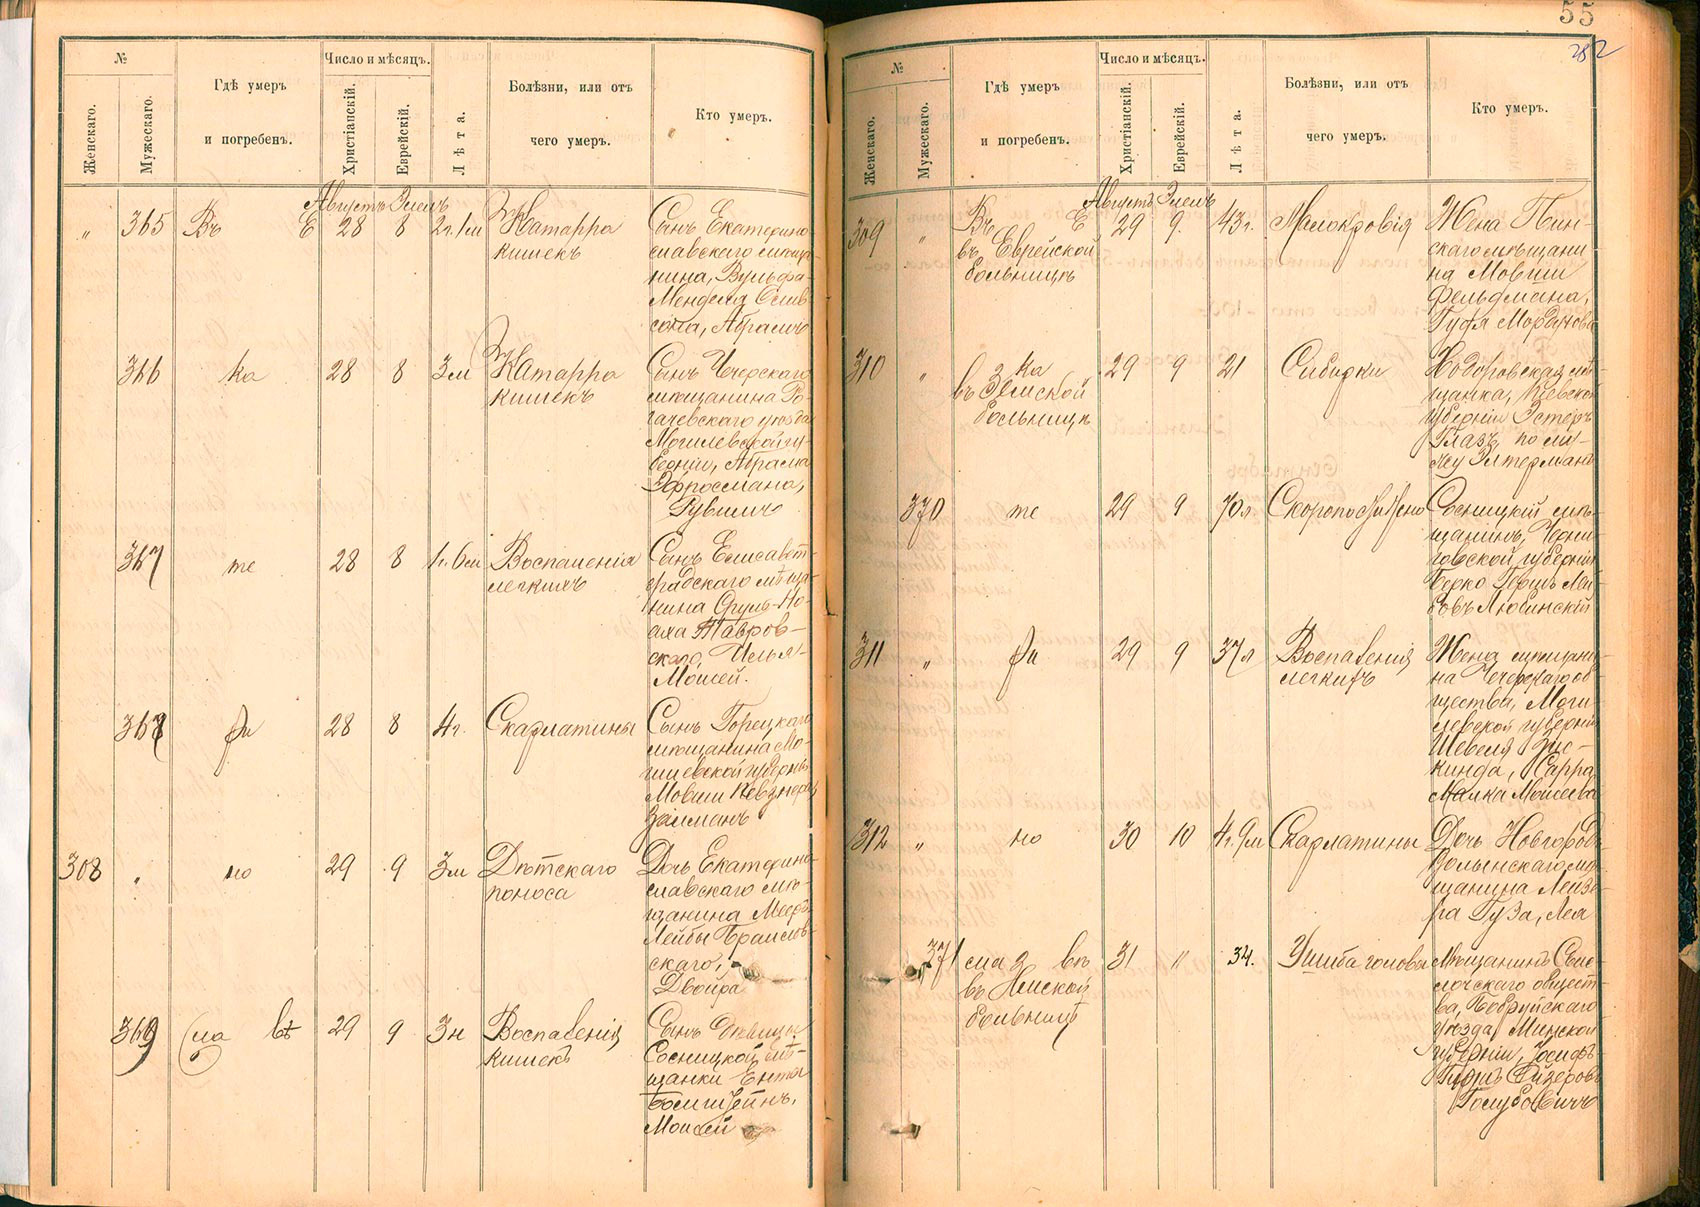 №
Женскаго.
Мужескаго.
Гдѣ умеръ
и погребенъ.
Число и мѣсяцъ.
Христіанскій.
Еврейскій.
Лѣта.
Болѣзни, или отъ
чего умеръ.
Кто умеръ.
Августъ Элелъ
„ 365 Въ Е 28 8 2г. 1м Катарра
кишекъ
Сынъ Екатерино-
славскаго мѣща-
нина, Вульфа-
Менделя
Абрамъ
366 ка 28 8 3м Катарра
кишекъ
Сынъ Чечерскаго
мѣщанина Ро-
гачевскаго уѣзда
Могилевской гу-
берніи, Абрама
Эфросмана,
Рувимъ
367 те 28 8 1г. 6м Воспаленія
легкихъ
Сынъ Елисавет-
градскаго мѣща-
нина Сруль-Но-
аха Тавров-
скаго, Илья-
Мошей.
368 ри 28 8 4г. Скарлатины
Сынъ Горецкаго
мѣщанина Мо-
гилевской губерніи
Мовши Невзнера,
Залманъ
308 „ но 29 9 3м Дѣтскаго
поноса
Дочь Екатерино-
славскаго мѣ-
щанина
Лейбы Браилов-
скаго,
Двойра
369 сла вѣ 29 9 3н Воспаленія
кишекъ
Сынъ дѣвицы
Сосницкой мѣ-
щанки Ента
Мойсей
55
282
№
Женскаго.
Мужескаго.
Гдѣ умеръ
и погребенъ.
Число и мѣсяцъ.
Христіанскій.
Еврейскій.
Лѣта.
Болѣзни, или отъ
чего умеръ.
Кто умеръ.
Августъ Элелъ
309 „ Въ Е 29 9. 43г. Малокровія
въ Еврейской
больницѣ
Жена Пин-
скаго мѣщани
на Мовши
Фельдмана,
Гутя
310 „ ка 29 9 21 Сибирки
въ Земской
больницѣ
Ходоровская мѣ-
щанка, Кіевской
губерніи Эстеръ
Глазъ, по му-
жу Элтерманъ
370 те 29 9 70л Скоропостижно
Сосницкій мѣ-
щанинъ, Черни-
говской губерніи
Берко Гершъ Лей-
бовъ Любинскій
311 „ ри 29 9 37л Воспаленія
легкихъ
Жена мѣщани-
на Чечерскаго об-
щества, Моги-
левской губерніи
Шевеля
Сарра
Малка Мошеева
312 „ но 30 10 4г. 9м Скарлатины
Дочь Новгородъ
волынскаго мѣ-
щанина Лейзе-
ра Гуза, Лея
371 сла вѣ 31 „ 34. Ушиба головы
въ Земской
больницѣ
Мѣщанинъ
общест-
ва, Бобруйскаго
уѣзда Минской
губерніи, Іосифъ-
Гиршъ
Голубовичъ